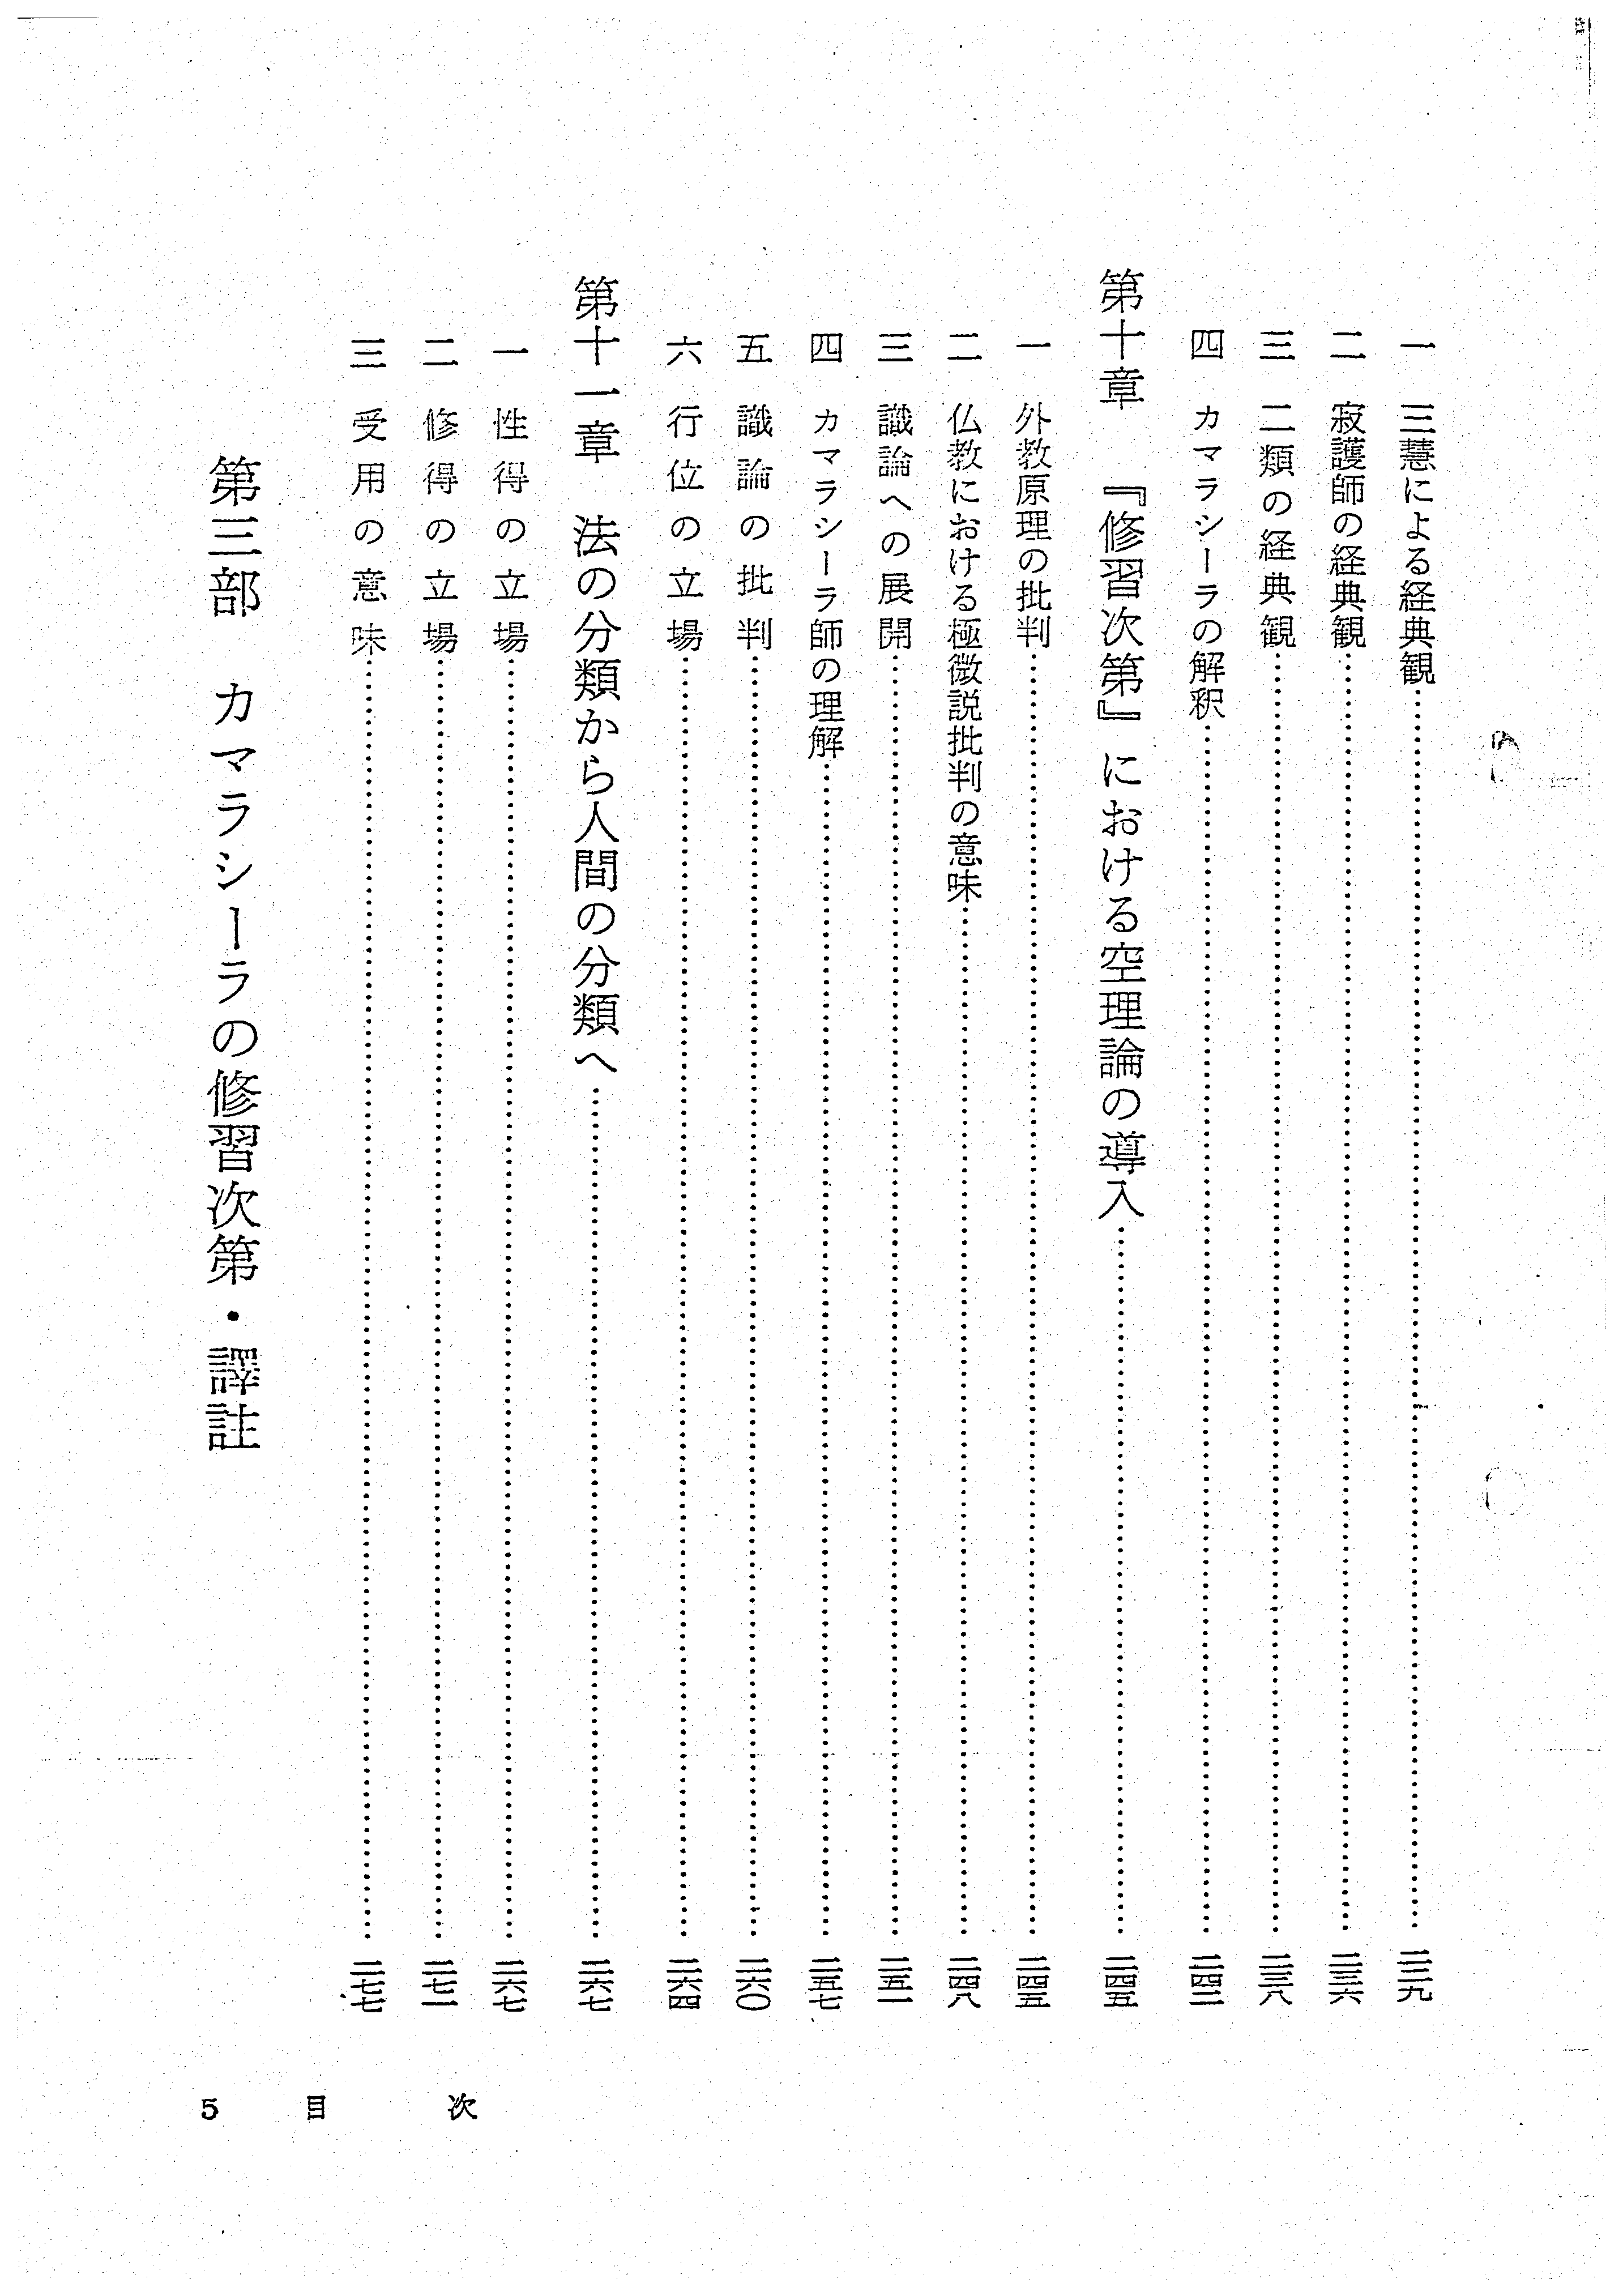 一　三慧による経典観……二二九
二　寂護師の経典観……二三六
三　二類の経典観……二三八
四　カマラシーラの解釈……二四二
第十章　『修習次第』における空理論の導入……二四五
一　外教原理の批判……二四五
二　仏教における極微説批判の意味……二四八
三　識論への展開……二五一
四　カマラシーラ師の理解……二五七
五　識論の批判……二六〇
六　行位の立場……二六四
第十一章　法の分類から人間の分類へ……二六七
一　性得の立場……二六七
二　修得の立場……二七一
三　受用の意味……二七七
第三部　カマラシーラの修習次第・譯註
5　目　次